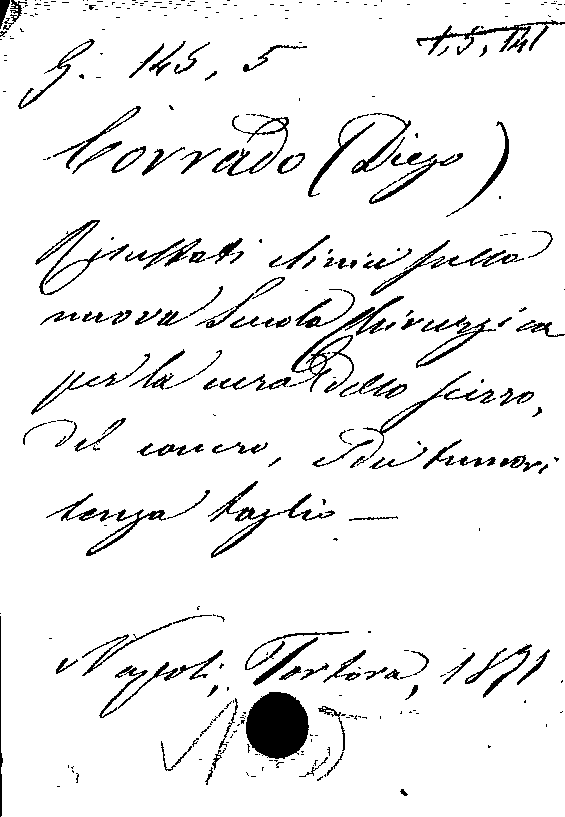 G. 145, 5 1, 5, 141
Corrado (Diego)
Risultati clinici sulla
nuova Scuola Chirurgica
per la cura dello scirro,
del cancro, e dei tumori
senza taglio —
Napoli, Tortora, 1871